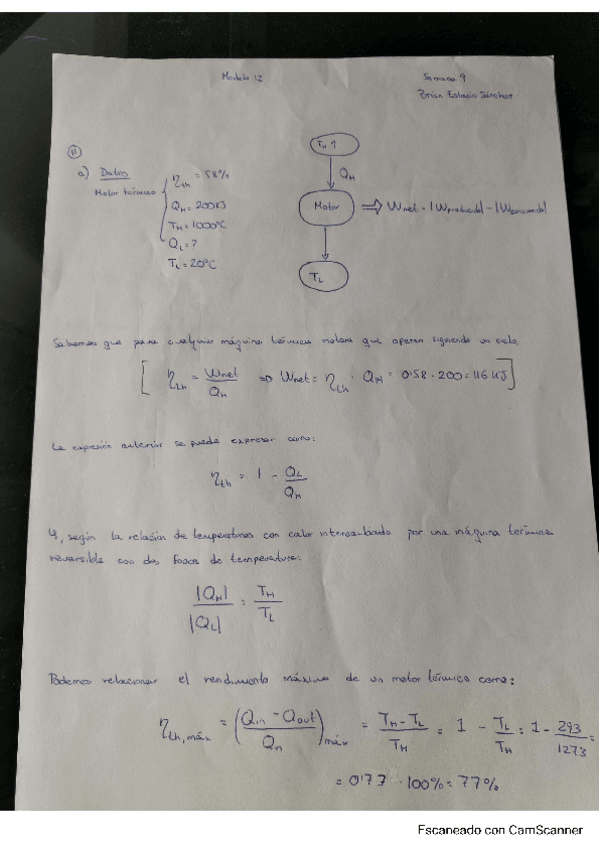 Modelo 12 Semana 9
Brian Estacio Sánchez
11
a) Datos
Motor térmico
ηth = 58%
QH = 200 kJ
TH = 1000ºC
QL = ?
TL = 20ºC
TH
QH
Motor ⇒ Wnet = |Wproducido| - |Wconsumido|
TL
Sabemos que para cualquier máquina térmica motora que operan siguiendo un ciclo,
[ηth = Wnet/QH ⇒ Wnet = ηth · QH = 0'58 · 200 = 116 kJ]
La expresión anterior se puede expresar como:
ηth = 1 - QL/QH
Y, según la relación de temperaturas con calor intercambiado por una máquina térmica
reversible con dos focos de temperatura:
|QH|/|QL| = TH/TL
Podemos relacionar el rendimiento máximo de un motor térmico como:
ηth,máx = (Qin - Qout/Qin)máx = TH - TL/TH = 1 - TL/TH = 1 - 293/1273 =
= 0'77 · 100% = 77%
Escaneado con CamScanner